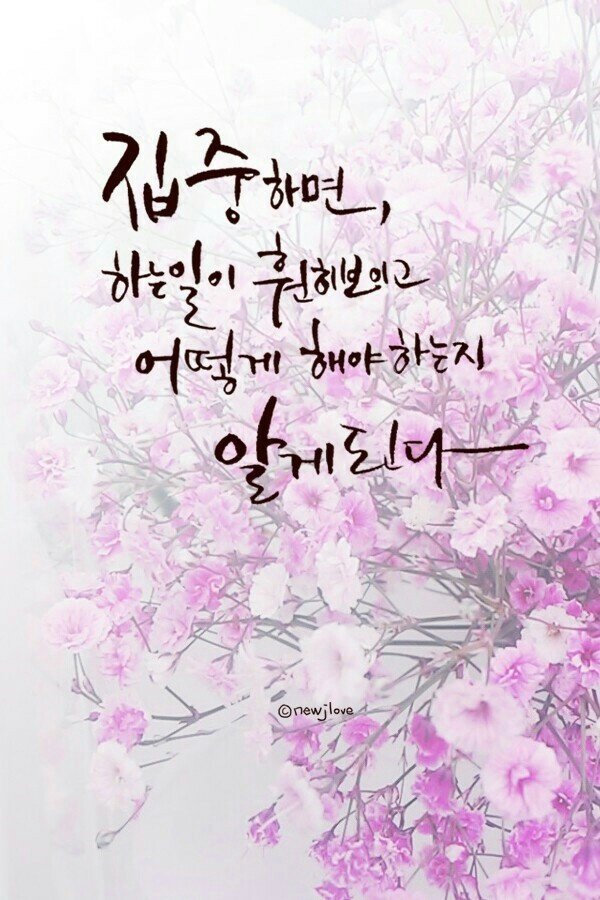 집중하면,
하는일이 훤히보이고
어떻게 해야하는지
알게된다
©newjlove